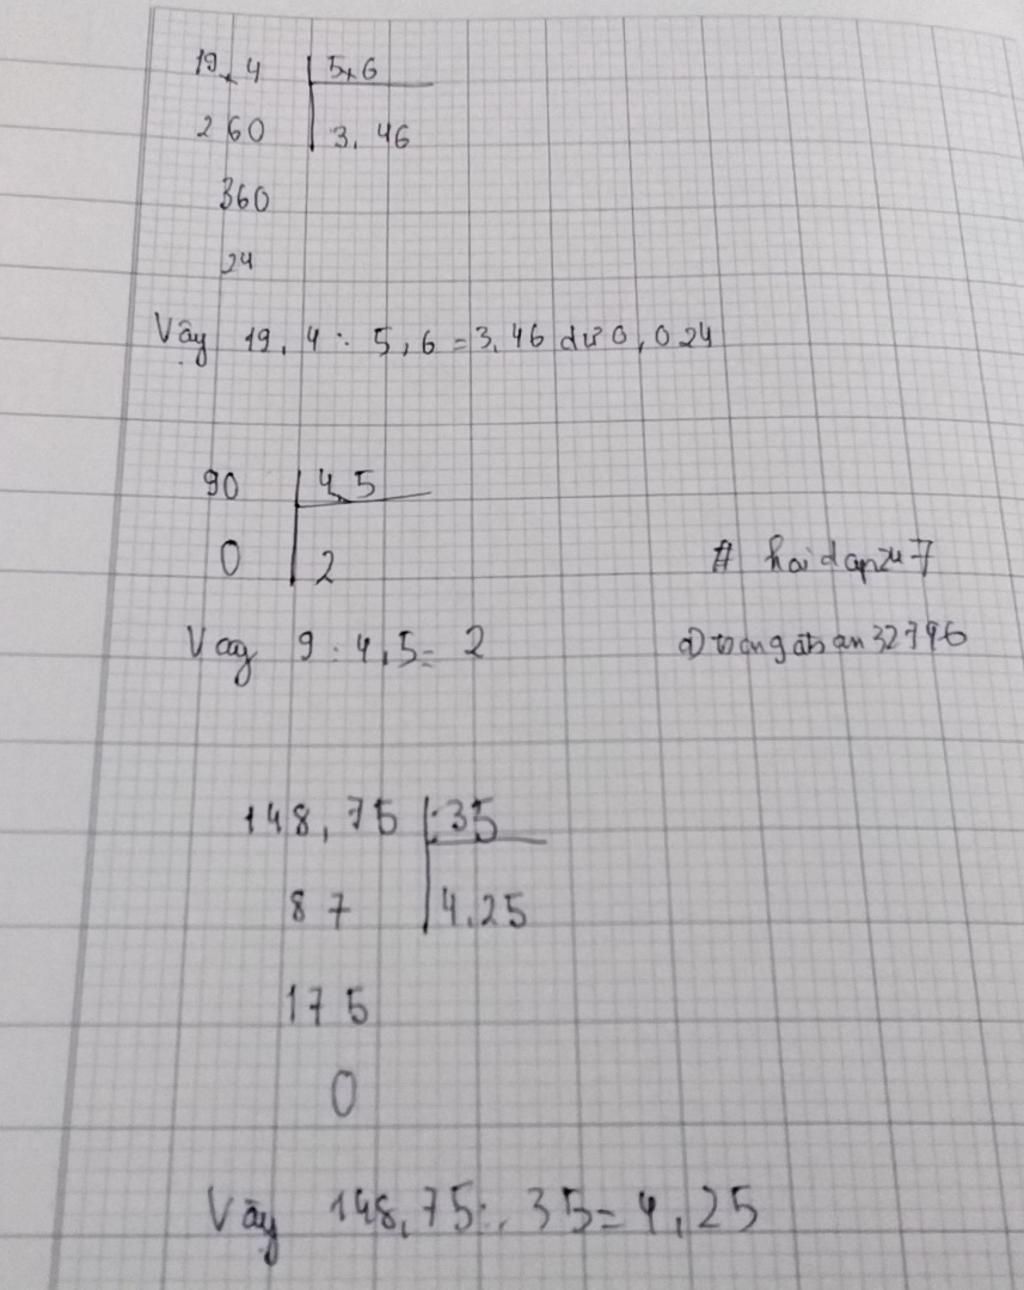 19,4 5,6
260 3,46
360
24
Vậy 19,4 : 5,6 = 3,46 dư 0,024
90 4,5
0 2
# hoidap247
Vay 9 : 4,5 = 2
32796
148,75 35
87 4,25
175
0
Vậy 148,75 : 35 = 4,25